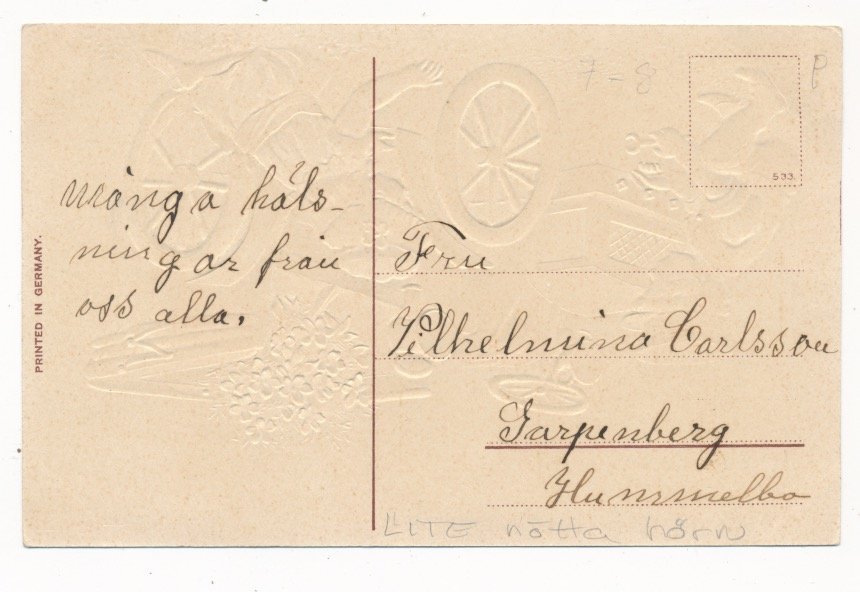 7-8
P
533.
många häls-
ningar från
oss alla.
Fru
Vilhelmina Carlsson
Garpenberg
Hummelbo
PRINTED IN GERMANY.
LITE nötta hörn